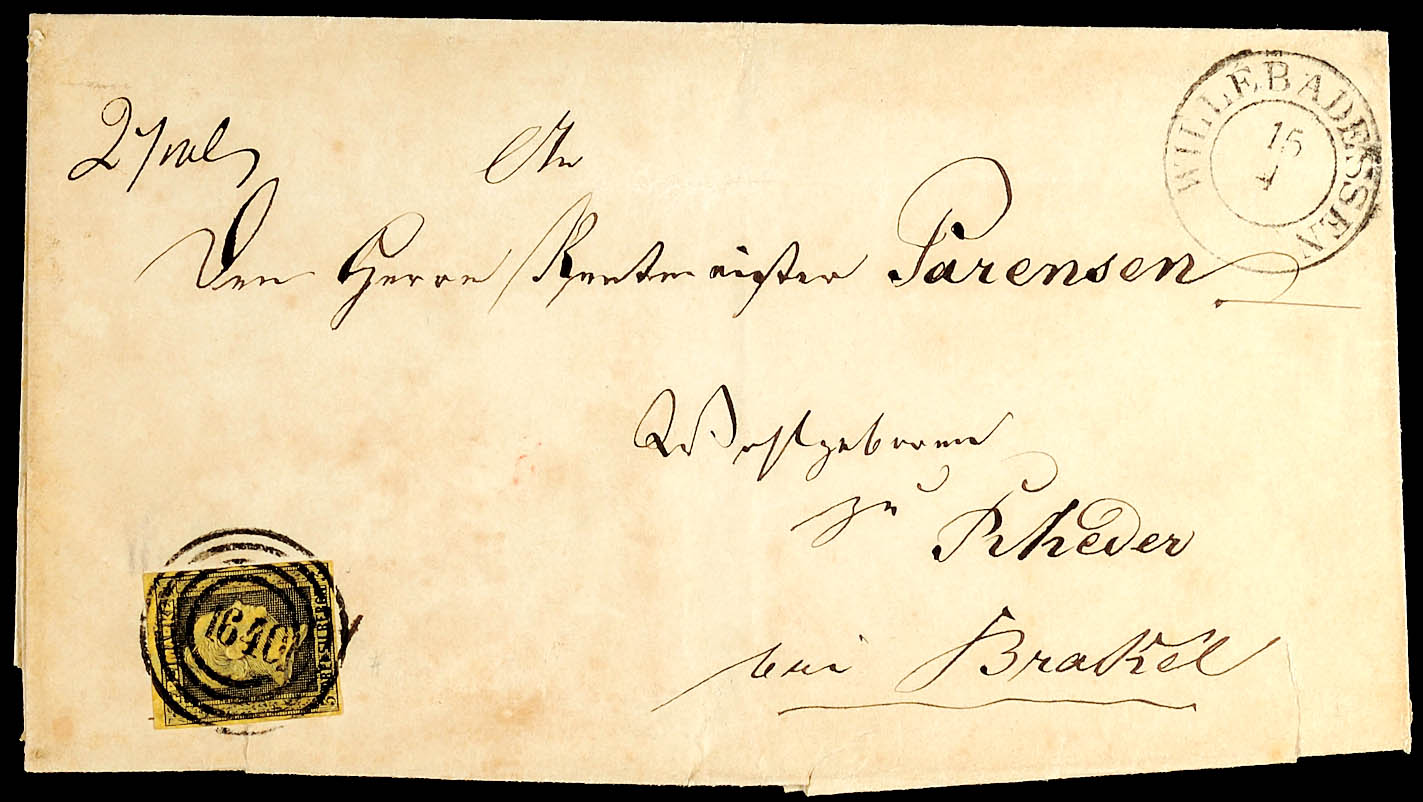 WILLEBADESSEN
15
An
Den Herrn Rentmeister Parensen
Wohlgeboren
zu Rheder
bei Brakel
1640